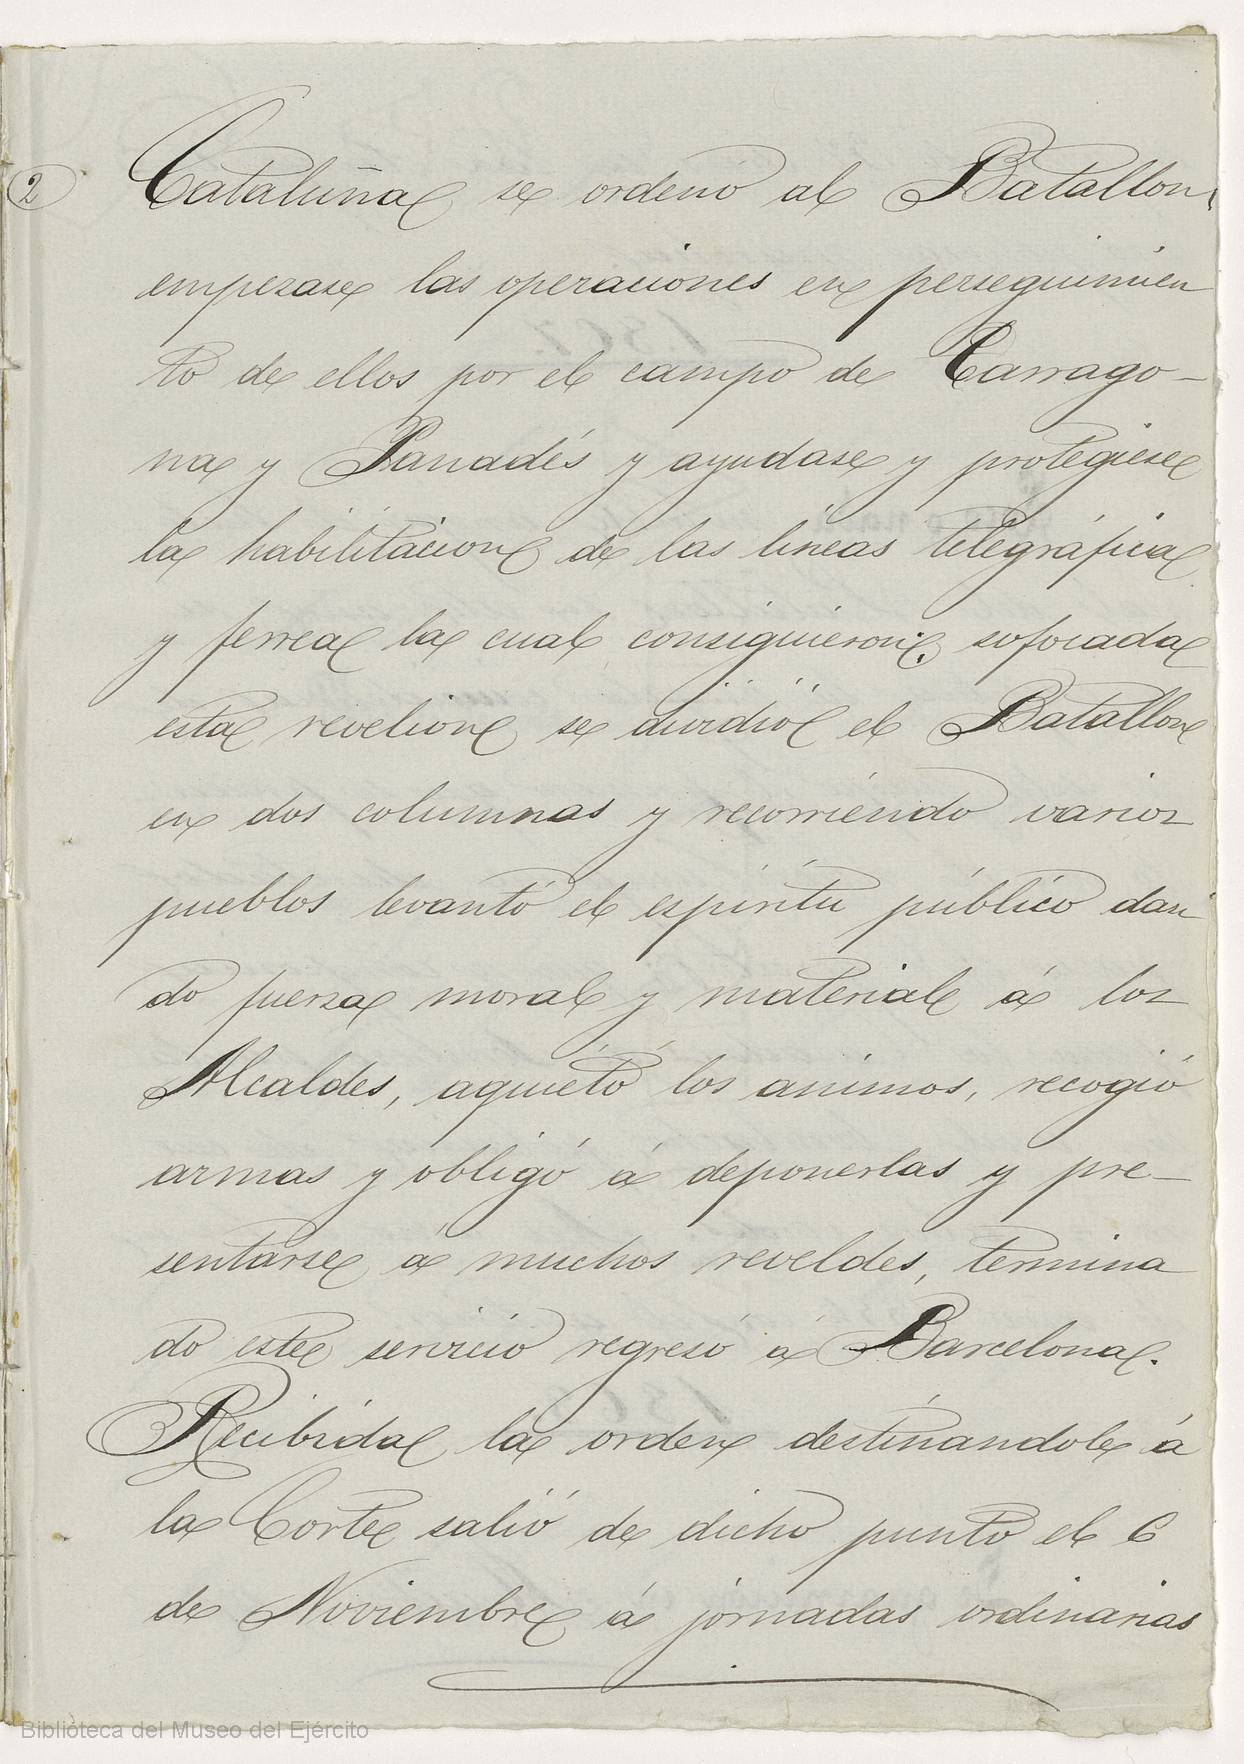 2
Cataluña se ordenó al Batallon,
empezase las operaciones en perseguimien
to de ellos por el campo de Tarrago-
na y Panadés y ayudase y protegiese
la habilitacion de las lineas telegráfica
y ferrea la cual consiguieron; sofocada
esta revelion se dividió el Batallon
en dos columnas y recorriendo varios
pueblos levantó el espíritu público dan
do fuerza moral y material á los
Alcaldes, aquietó los animos, recogió
armas y obligó á deponerlas y pre-
sentarse á muchos reveldes, termina
do este servicio regresó á Barcelona.
Recibida la orden destinandole á
la Corte salió de dicho punto el 6
de Noviembre á jornadas ordinarias
Biblioteca del Museo del Ejército